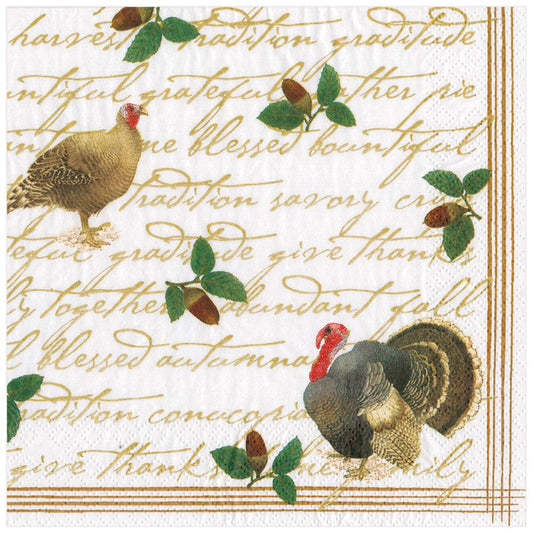 harvest tradition gratitude
ntiful grateful gather pie
me blessed bountiful
tradition savory cr
eful gratitude give thanks
y together abundant fall
l blessed autumna
radition conucopia
give thanks me mily